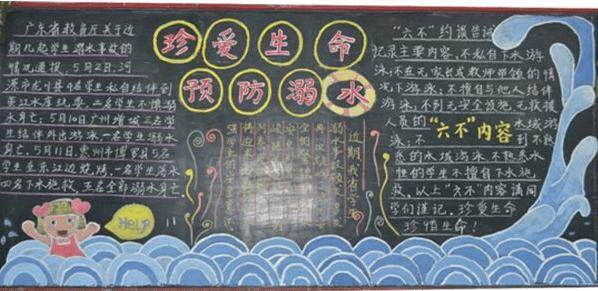 广东省教育厅关于近
期几起学生溺水事故的
情况通报，5月2日，河
源市龙川县4名学生私自结伴到
东江水库玩耍，一名学生不慎溺
水身亡；5月10日广州增城三名学
生结伴外出游泳，一名学生溺水
身亡；5月11日惠州市博罗县5名
学生至东江边烧烤，一名学生落水
四名下水施救，五名全部溺水身亡。
珍爱生命
预防溺水
近期，我省学生
Help
"六不"约谈告诫
记录主要内容，不私自下水游
泳；不在无家长或教师带领的情
况下游泳；不擅自与他人结伴
游泳；不到无安全设施、无救援
人员的"六不"内容水域游
泳；不到不熟
悉的水域游泳，不熟悉水
性的学生不擅自下水施
救，以上"六不"内容请同
学们谨记，珍爱生命
珍惜生命！